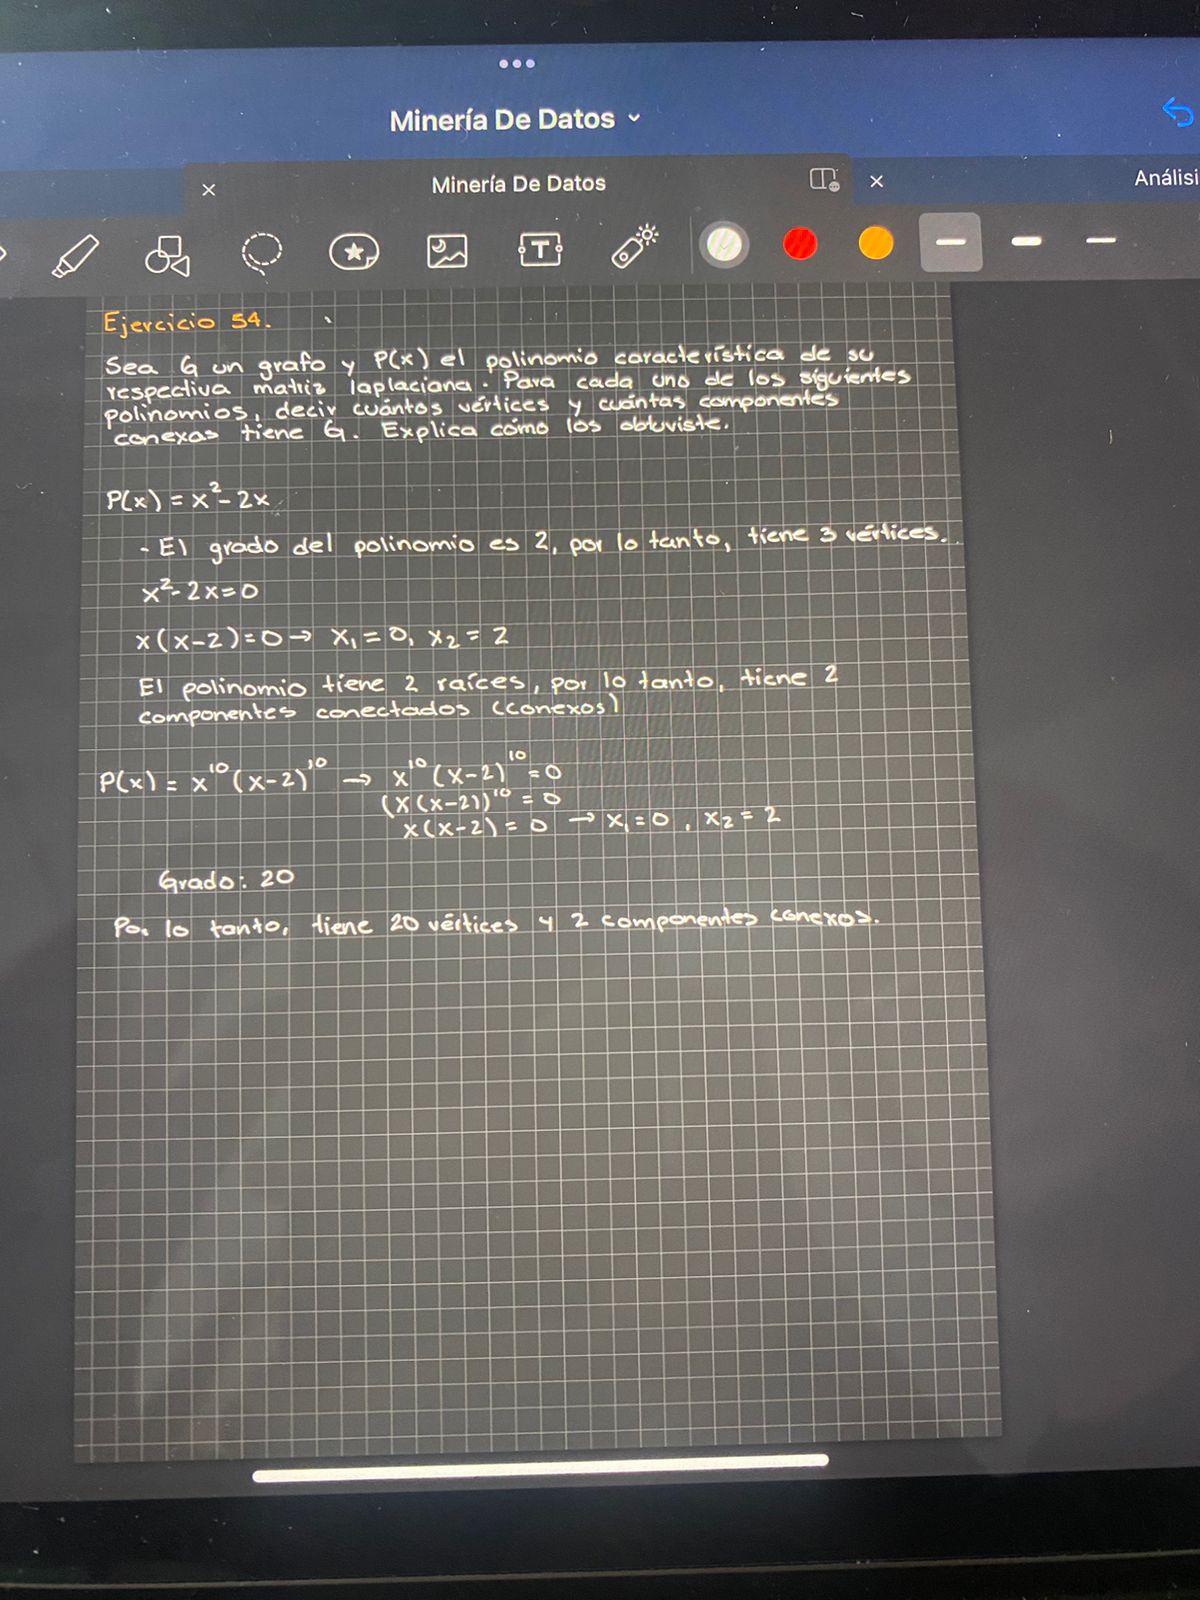 Minería De Datos
Minería De Datos
Análisi
T
Ejercicio 54.
Sea G un grafo y P(x) el polinomio característica de su
respectiva matriz laplaciana. Para cada uno de los siguientes
polinomios, decir cuántos vértices y cuántas componentes
conexas tiene G. Explica cómo los obtuviste.
P(x) = x² - 2x
- El grado del polinomio es 2, por lo tanto, tiene 3 vértices.
x² - 2x = 0
x(x-2) = 0 → x₁ = 0, x₂ = 2
El polinomio tiene 2 raíces, por lo tanto, tiene 2
componentes conectados (conexos)
P(x) = x¹⁰(x-2)¹⁰ → x¹⁰(x-2)¹⁰ = 0
(x(x-2))¹⁰ = 0
x(x-2) = 0 → x₁ = 0, x₂ = 2
Grado: 20
Por lo tanto, tiene 20 vértices y 2 componentes conexos.